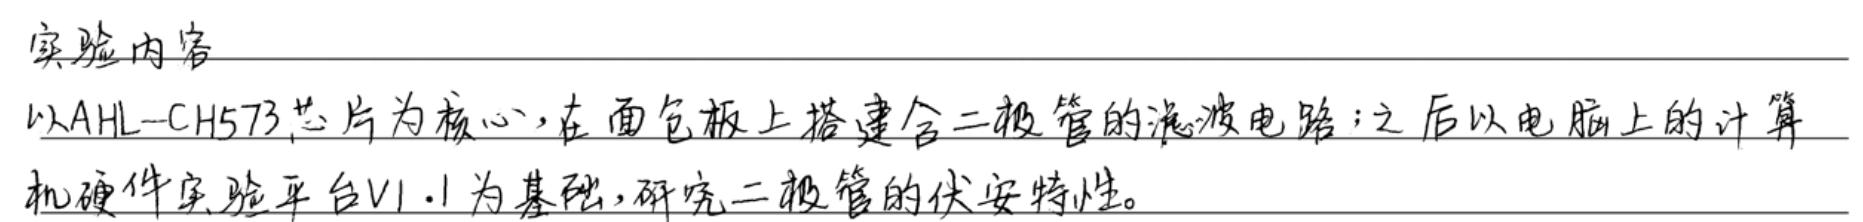 实验内容
以AHL-CH573芯片为核心,在面包板上搭建含二极管的滤波电路;之后以电脑上的计算
机硬件实验平台V1.1为基础,研究二极管的伏安特性。